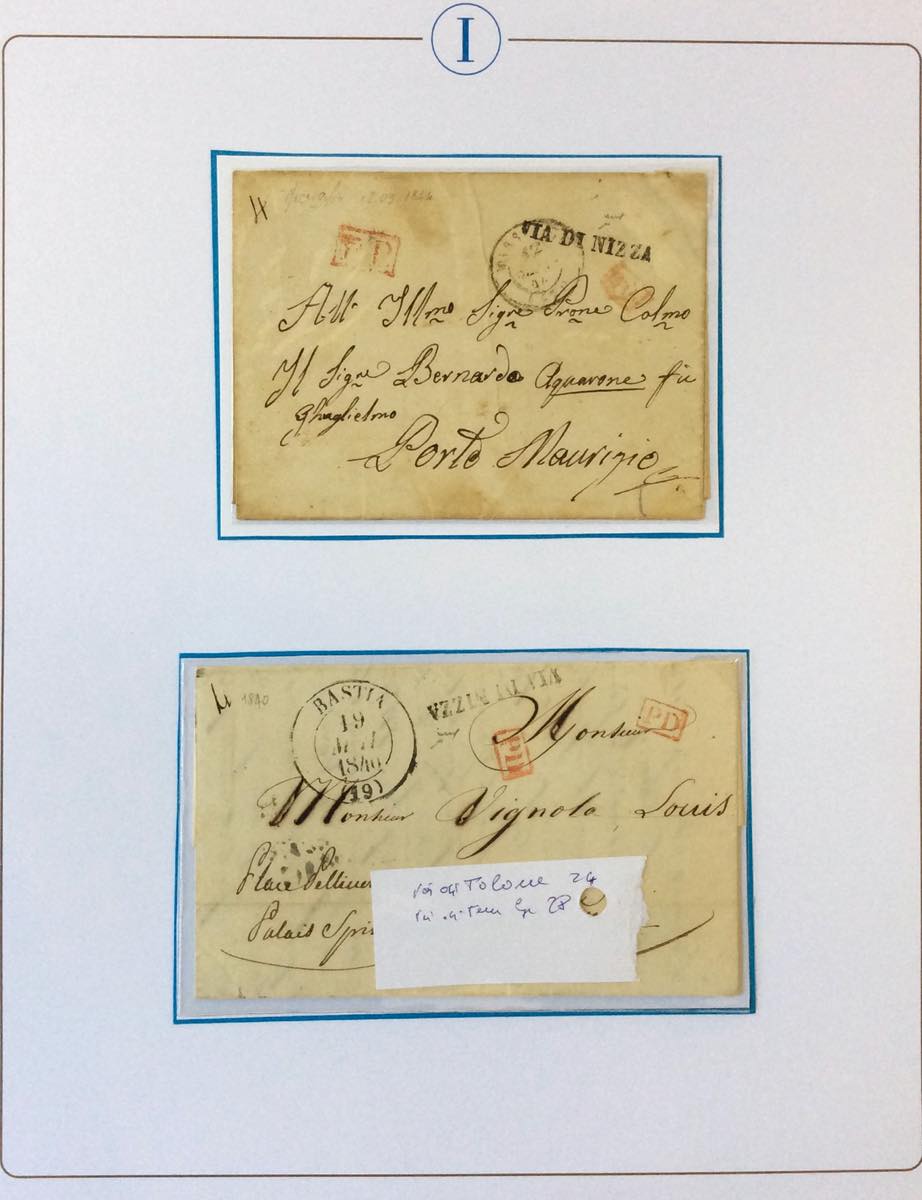 I
1844
P.P.
VIA DI NIZZA
All' Illmo Sigre Prone Colmo
Il Sigre Bernardo Aquarone fù
Ghuglielmo
Porto Maurizio
1840
BASTIA
19
1840
(19)
VIA DI NIZZA
PD
Monsieur
Monsieur Vignolo Louis
Place
Palais
Tolone 24
28